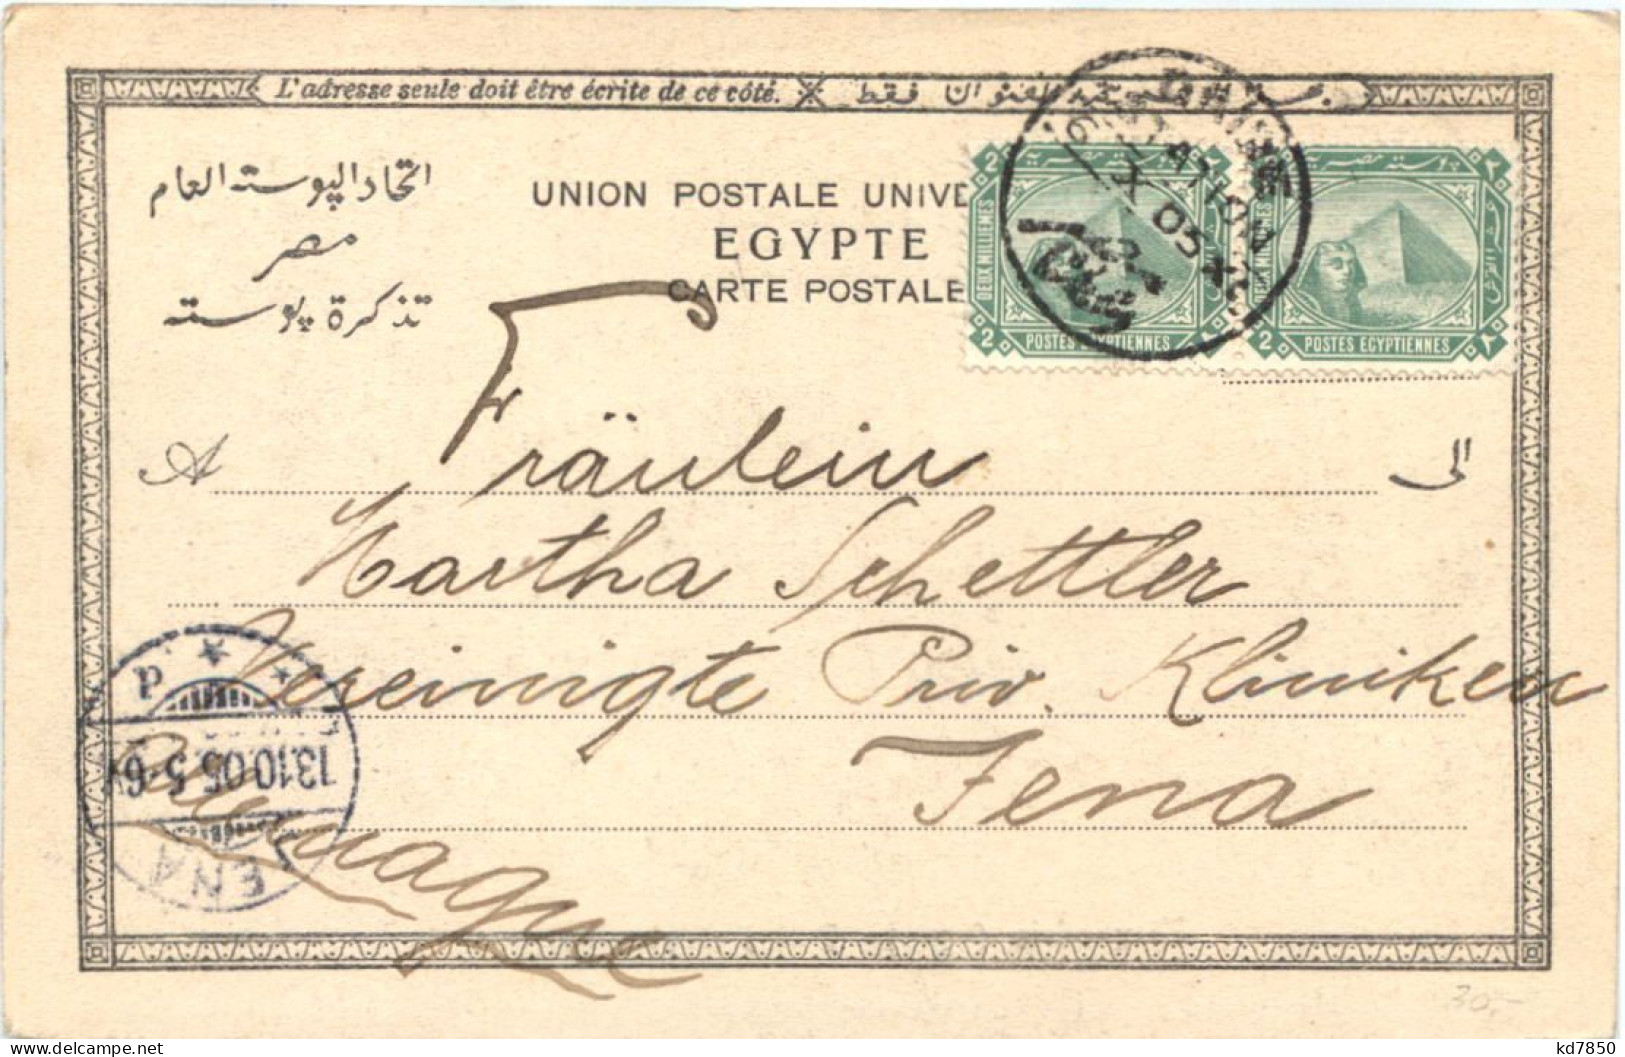 L'adresse seule doit être écrite de ce côté.
اتحاد البوسته العام
مصر
تذكرة بوسته
UNION POSTALE UNIVE
EGYPTE
CARTE POSTALE
2 2 ٢ ٢
DEUX MILLIEMES
POSTES EGYPTIENNES
بوستة مصرية
2 2 ٢ ٢
POSTES EGYPTIENNES
STATION
X 05
A
الى
Fräulein
Martha Schettler
Vereinigte Priv. Kliniken
Jena
Allemagne
13.10.05. 5-6
JENA
30.-
kd7850